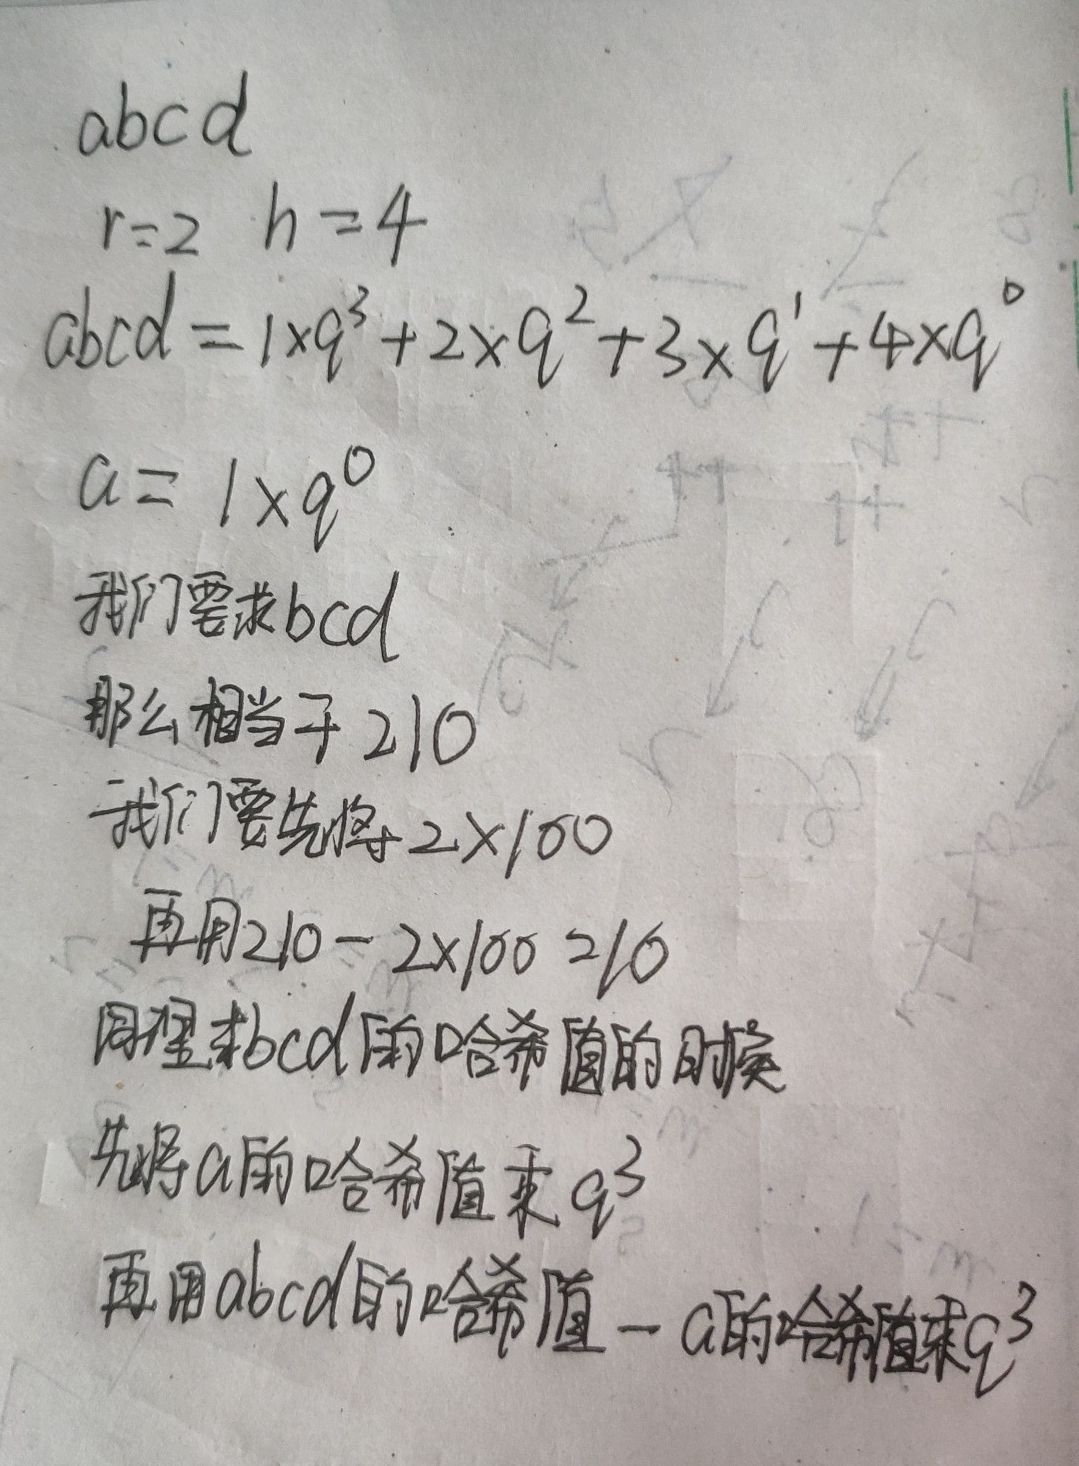 abcd
r=2 h=4
abcd=1×q³+2×q²+3×q¹+4×q⁰
a=1×q⁰
我们要求bcd
那么相当于210
我们要先将2×100
再用210-2×100=10
同理求bcd的哈希值的时候
先将a的哈希值乘q³
再用abcd的哈希值-a的哈希值乘q³